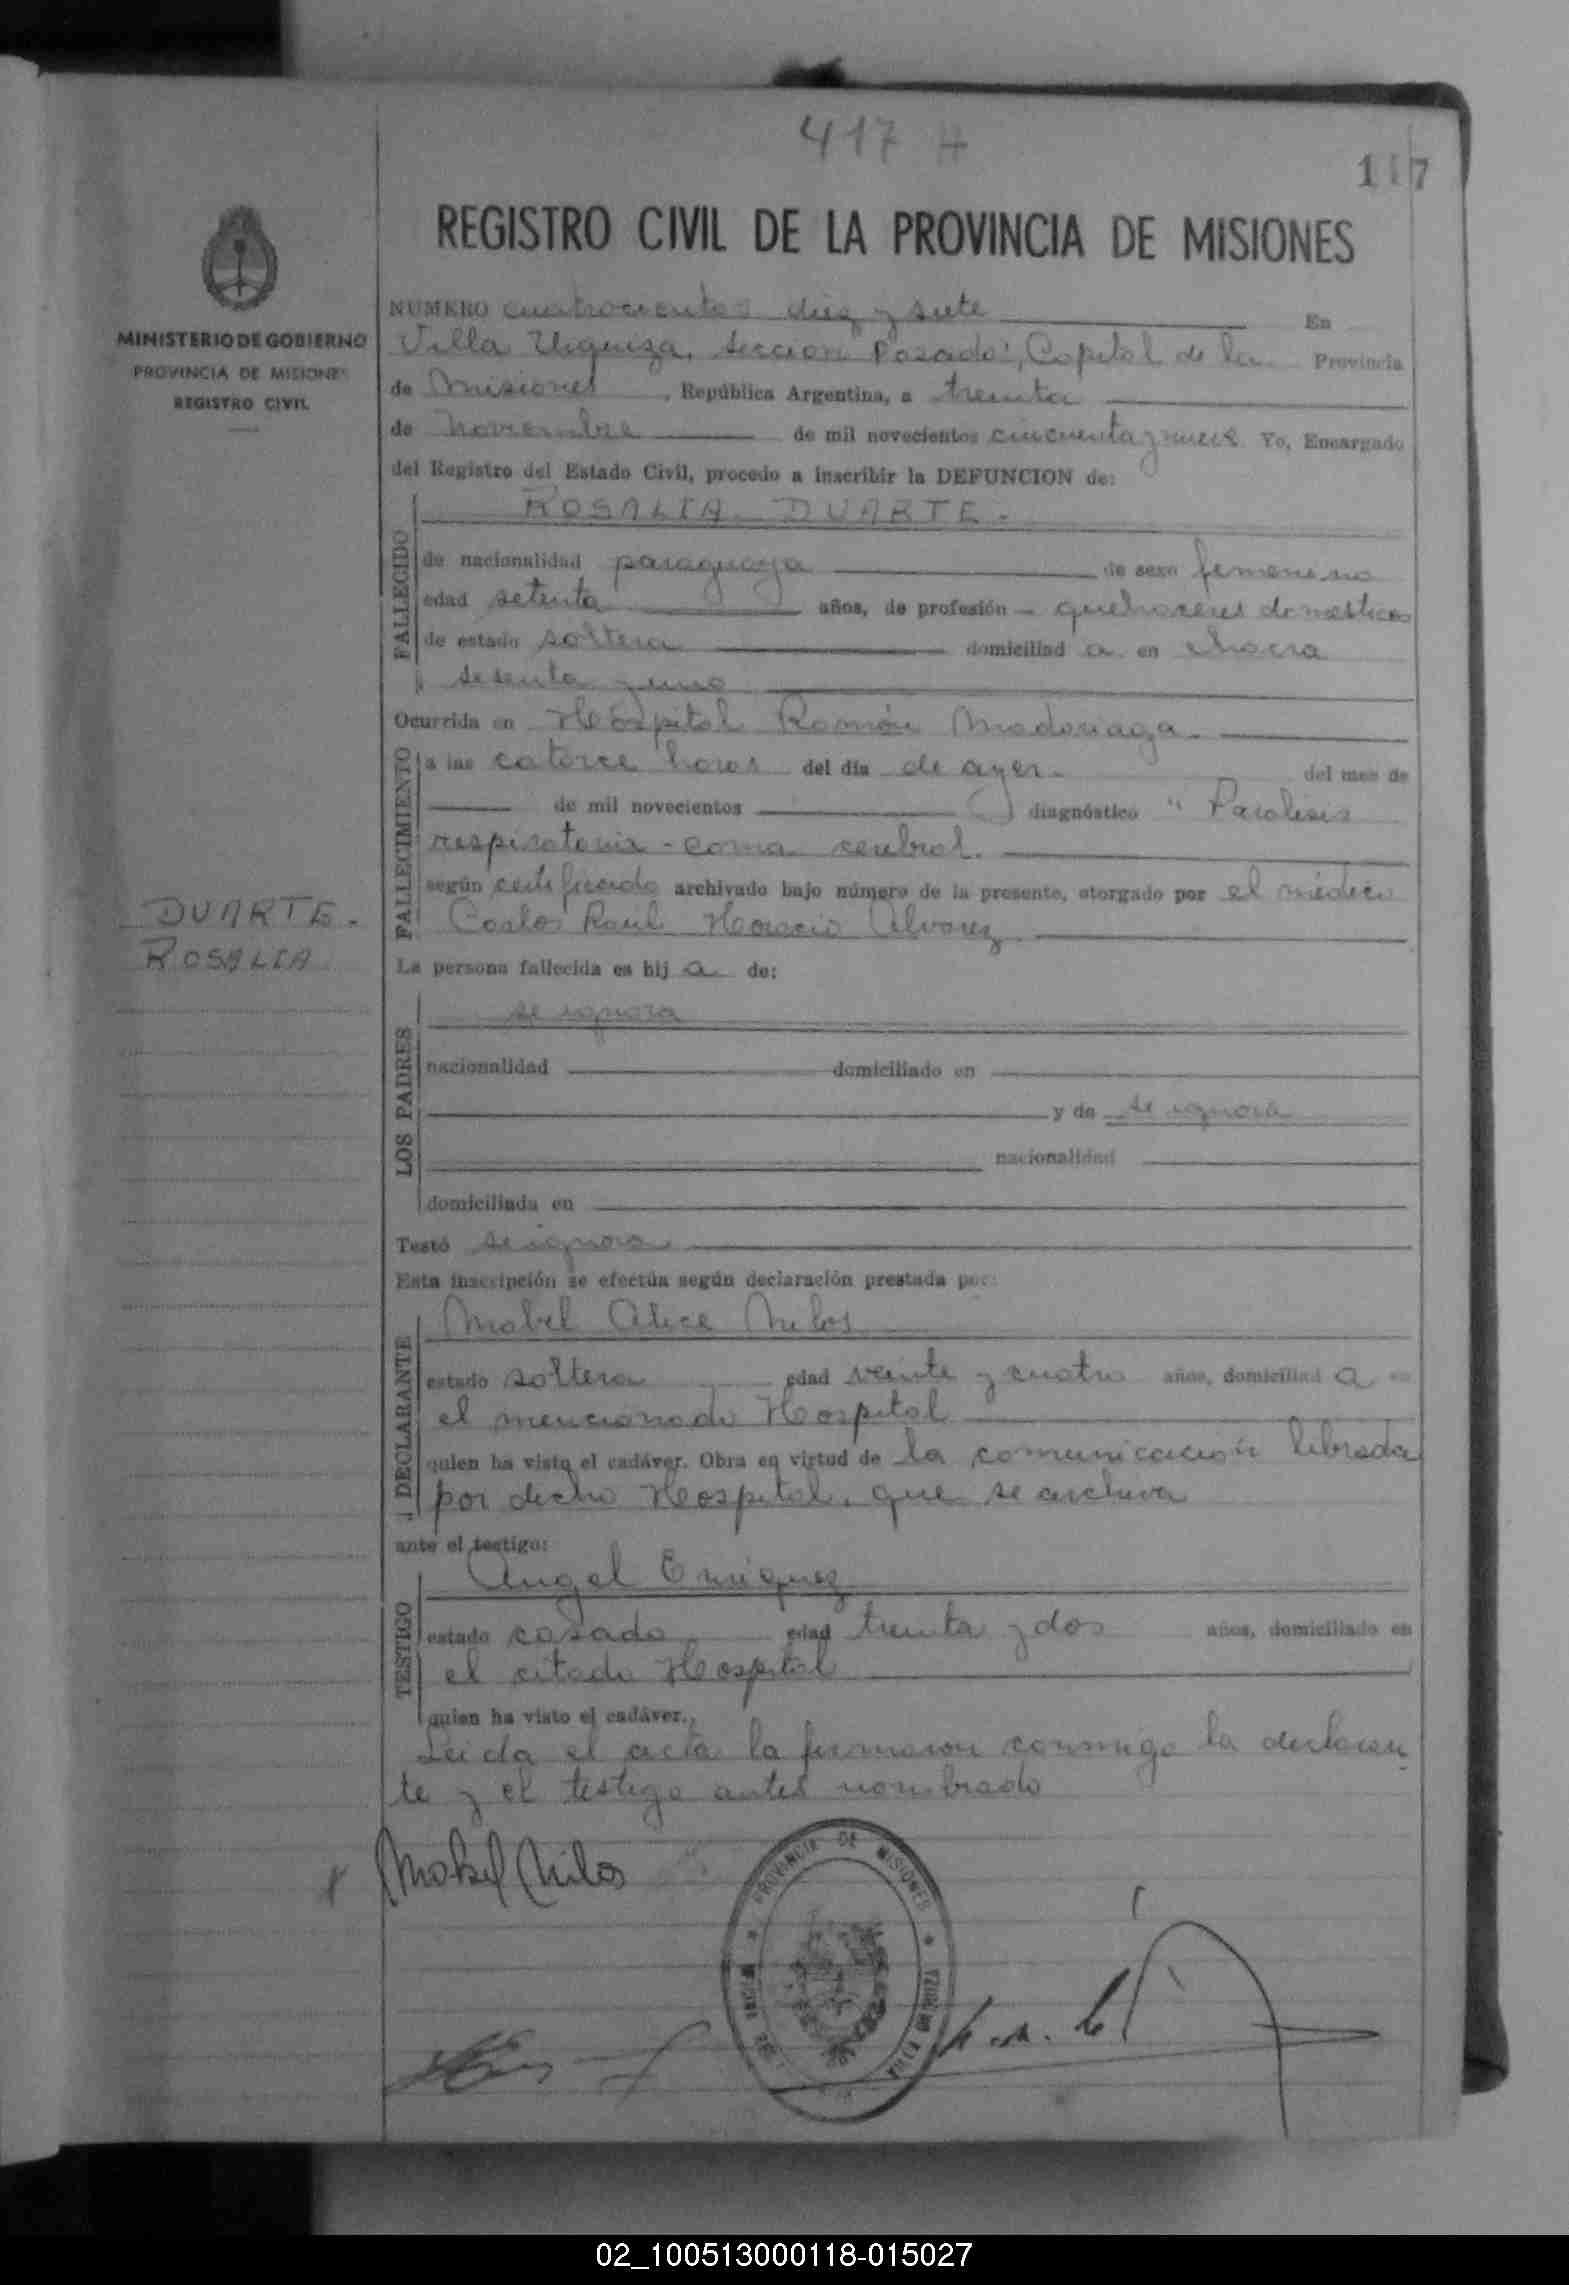 417 H
117
REGISTRO CIVIL DE LA PROVINCIA DE MISIONES
MINISTERIO DE GOBIERNO
PROVINCIA DE MISIONES
REGISTRO CIVIL
NUMERO cuatrocientos diez y siete En
Villa Urquiza, sección Posadas, Capital de la Provincia
de Misiones, República Argentina, a treinta
de noviembre de mil novecientos cincuenta y nueve Yo, Encargado
del Registro del Estado Civil, procedo a inscribir la DEFUNCION de:
ROSALIA DUARTE.
FALLECIDO
de nacionalidad paraguaya de sexo femenino
edad setenta años, de profesión quehaceres domésticos
de estado soltera domiciliad a en chacra
sesenta y uno
Ocurrida en Hospital Ramón Madariaga.
FALLECIMIENTO
a las catorce horas del día de ayer. del mes de
de mil novecientos diagnóstico "Paralisis
respiratoria - coma cerebral.
según certificado archivado bajo número de la presente, otorgado por el médico
Carlos Raúl Horacio Alvarez
DUARTE.
ROSALIA
La persona fallecida es hij a de:
LOS PADRES
se ignora
nacionalidad domiciliado en
y de se ignora
nacionalidad
domiciliada en
Testó se ignora
Esta inscripción se efectúa según declaración prestada por:
DECLARANTE
Mabel Alice Milos
estado soltera edad veinte y cuatro años, domiciliad a en
el mencionado Hospital
quien ha visto el cadáver. Obra en virtud de la comunicación librada
por dicho Hospital, que se archiva
ante el testigo:
TESTIGO
Angel Enriquez
estado casado edad treinta y dos años, domiciliado en
el citado Hospital
quien ha visto el cadáver.
Leida el acta la firmaron conmigo la declaran
te y el testigo antes nombrado
Mabel Milos
PROVINCIA DE MISIONES
02_100513000118-015027